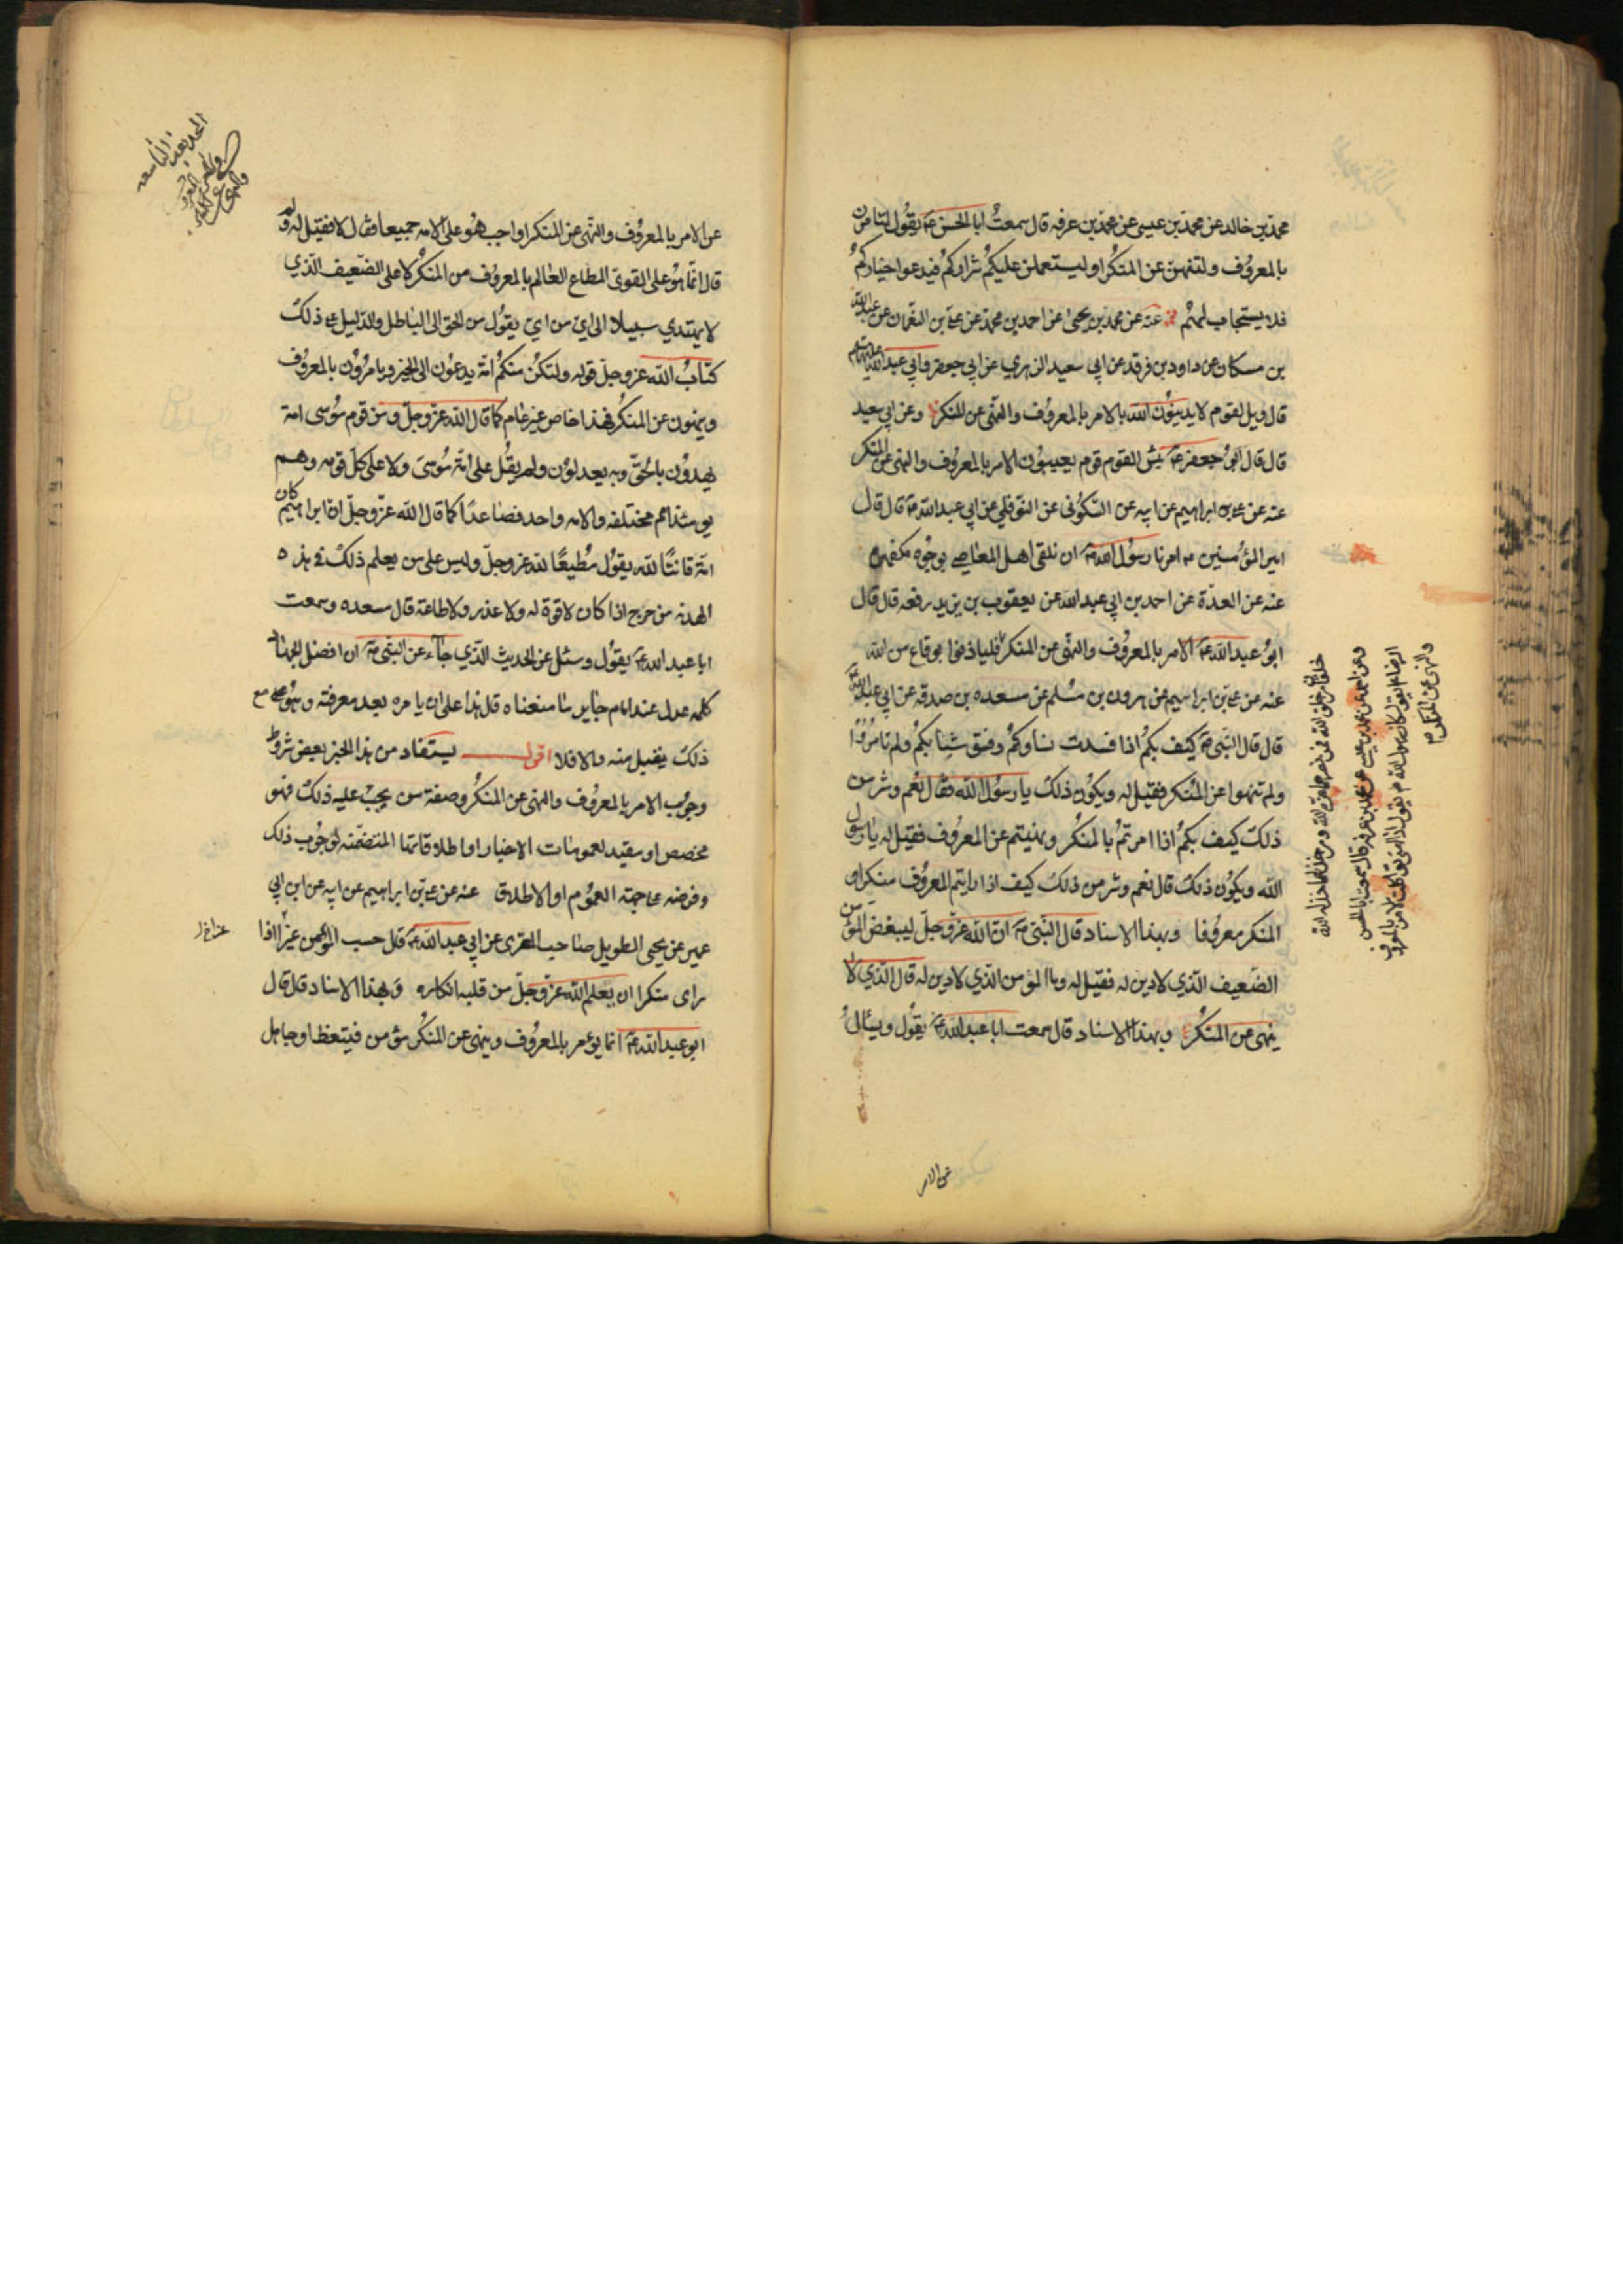 محمد بن خالد عن محمد بن عيسى عن محمد بن عرفه قال سمعت ابا الحسن ع يقول لتامرن
بالمعروف ولتنهن عن المنكر او ليستعملن عليكم شراركم فيدعوا خياركم
فلا يستجاب لهم عنه عن محمد بن يحيى عن احمد بن محمد عن علي بن النعمان عن عبد الله
بن مسكان عن داود بن فرقد عن ابي سعيد الزهري عن ابي جعفر وابي عبد الله عليهما السلام
قال ويل لقوم لا يدينون الله بالامر بالمعروف والنهي عن المنكر وعن ابي سعيد
قال قال ابو جعفر ع بئس القوم قوم يعيبون الامر بالمعروف والنهي عن المنكر
عنه عن علي بن ابراهيم عن ابيه عن السكوني عن النوفلي عن ابي عبد الله ع قال قال
امير المؤمنين ع امرنا رسول الله ص ان نلقى اهل المعاصي بوجوه مكفهره
عنه عن العدة عن احمد بن ابي عبد الله عن يعقوب بن يزيد رفعه قال قال
ابو عبد الله ع الامر بالمعروف والنهي عن المنكر فلياذنوا بوقاع من الله
عنه عن علي بن ابراهيم عن هرون بن مسلم عن مسعده بن صدقه عن ابي عبد الله ع
قال قال النبي ص كيف بكم اذا فسدت نساوكم وفسق شبابكم ولم تامروا
ولم تنهوا عن المنكر فقيل له ويكون ذلك يا رسول الله فقال نعم وشر من
ذلك كيف بكم اذا امرتم بالمنكر ونهيتم عن المعروف فقيل له يا رسول
الله ويكون ذلك قال نعم وشر من ذلك كيف اذا رايتم المعروف منكرا و
المنكر معروفا وبهذا الاسناد قال النبي ص ان الله عز وجل ليبغض المؤمن
الضعيف الذي لا دين له فقيل له وما المؤمن الذي لا دين له قال الذي لا
ينهى عن المنكر وبهذا الاسناد قال سمعت ابا عبد الله ع يقول ويسأل
عن الامر
وعن احمد عن محمد بن عيسى عن محمد بن عرفه قال سمعت ابا الحسن
والنهي عن المنكر
عن الامر بالمعروف والنهي عن المنكر اواجب هو على الامه جميعا فقال لا فقيل له ولم
قال انما هو على القوي المطاع العالم بالمعروف من المنكر لا على الضعيف الذي
لا يهتدي سبيلا الى اي من اي يقول من الحق الى الباطل والدليل على ذلك
كتاب الله عز وجل قوله ولتكن منكم امة يدعون الى الخير ويامرون بالمعروف
وينهون عن المنكر فهذا خاص غير عام كما قال الله عز وجل ومن قوم موسى امة
يهدون بالحق وبه يعدلون ولم يقل على امة موسى ولا على كل قومه وهم
يومئذ امم مختلفه والامه واحد فصاعدا كما قال الله عز وجل ان ابراهيم كان
امة قانتا لله يقول مطيعا لله عز وجل وليس على من يعلم ذلك في هذه
الهدنه من حرج اذا كان لا قوة له ولا عذر ولا طاعة قال مسعده وسمعت
ابا عبد الله ع يقول وسئل عن الحديث الذي جاء عن النبي ص ان افضل الجهاد
كلمه عدل عند امام جاير ما معناه قال هذا على ان يامره بعد معرفته وهو مع
ذلك يقبل منه والا فلا اقول يستفاد من هذا الخبر بعض شروط
وجوب الامر بالمعروف والنهي عن المنكر وصفة من يجب عليه ذلك فهو
مخصص او مقيد لعمومات الاخبار او اطلاقاتها المتضمنه لوجوب ذلك
وفرضه على جهة العموم او الاطلاق عنه عن علي بن ابراهيم عن ابيه عن ابن ابي
عمير عن يحيى الطويل صاحب المقري عن ابي عبد الله ع قال حسب المؤمن عزا اذا
راى منكرا ان يعلم الله عز وجل من قلبه انكاره وبهذا الاسناد قال قال
ابو عبد الله ع انما يؤمر بالمعروف وينهى عن المنكر مؤمن فيتعظ او جاهل